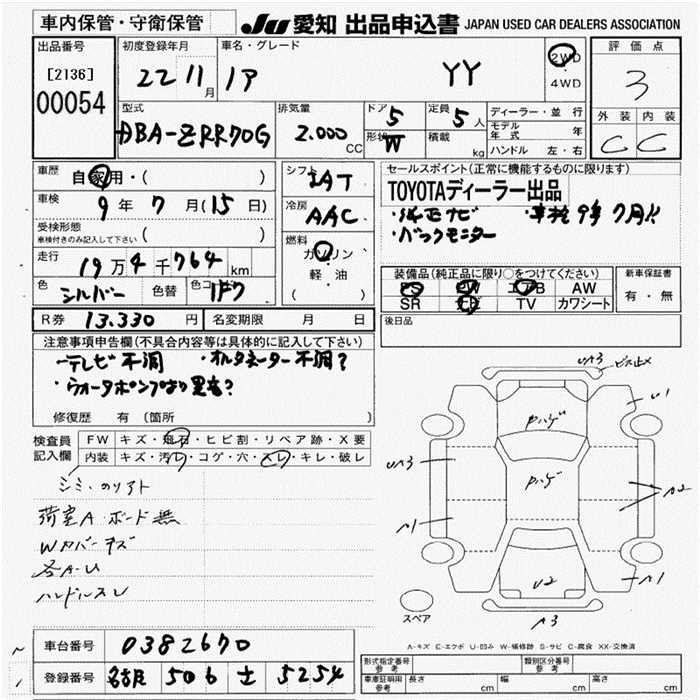 車内保管・守衛保管
JU 愛知 出品申込書 JAPAN USED CAR DEALERS ASSOCIATION
出品番号
[2136]
00054
初度登録年月
22 11月
車名・グレード
YY
2WD
4WD
評価点
3
外装 内装
C C
型式
DBA-ZRR70G
排気量
2.000 CC
ドア 5
形状 W
定員 5人
積載 kg
ディーラー・並行
モデル年式 年
ハンドル 左・右
車歴 自家用・( )
車検 9年7月(15日)
受検形態
車検付きのみ記入して下さい ( )
走行 19万4千764km
色 シルバー 色替 色コード 1F7
シフト
IAT
冷房
AAC
燃料
ガソリン
軽・油
( )
セールスポイント(正常に機能するものに限ります)
TOYOTAディーラー出品
・純正ナビ ・車検9年7月!!
・バックモニター
装備品(純正品に限り○をつけてください)
PS PW エアB AW
SR ナビ TV カワシート
新車保証書
有・無
R券 13.330円 名変期限 月 日
後日品
注意事項申告欄(不具合内容等は具体的に記入して下さい)
・テレビ不調 ・オルタネーター不調?
・ウォーターポンプより異音?
修復歴 有 〔箇所 〕
検査員記入欄
FW キズ・飛石・ヒビ割・リペア跡・X要
内装 キズ・汚レ・コゲ・穴・スレ・キレ・破レ
シミ・のりアト
荷室A・ボード無
Wカバーキズ
各A-U
ハンドルスレ
UA3 ビス止メ
U1
Pハゲ
UA3
Pハゲ
A2
A1
U2
A1
A3
スペア
A-キズ E-エクボ U-凹み W-補修跡 S-サビ C-腐食 XX-交換済
車台番号 0382670
登録番号 名古屋 506 す 5254
形式指定番号 参考
類別区分番号 参考
車庫証明用 参考 長さ cm 幅 cm 高さ cm